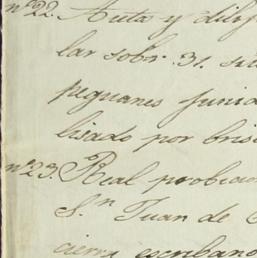 nº 22. Auta y dilig
lar sobr. 31. sit
peguanes Junid
lisado por bris
nº 23. Real probicio
Sn Juan de C
cierra escribano